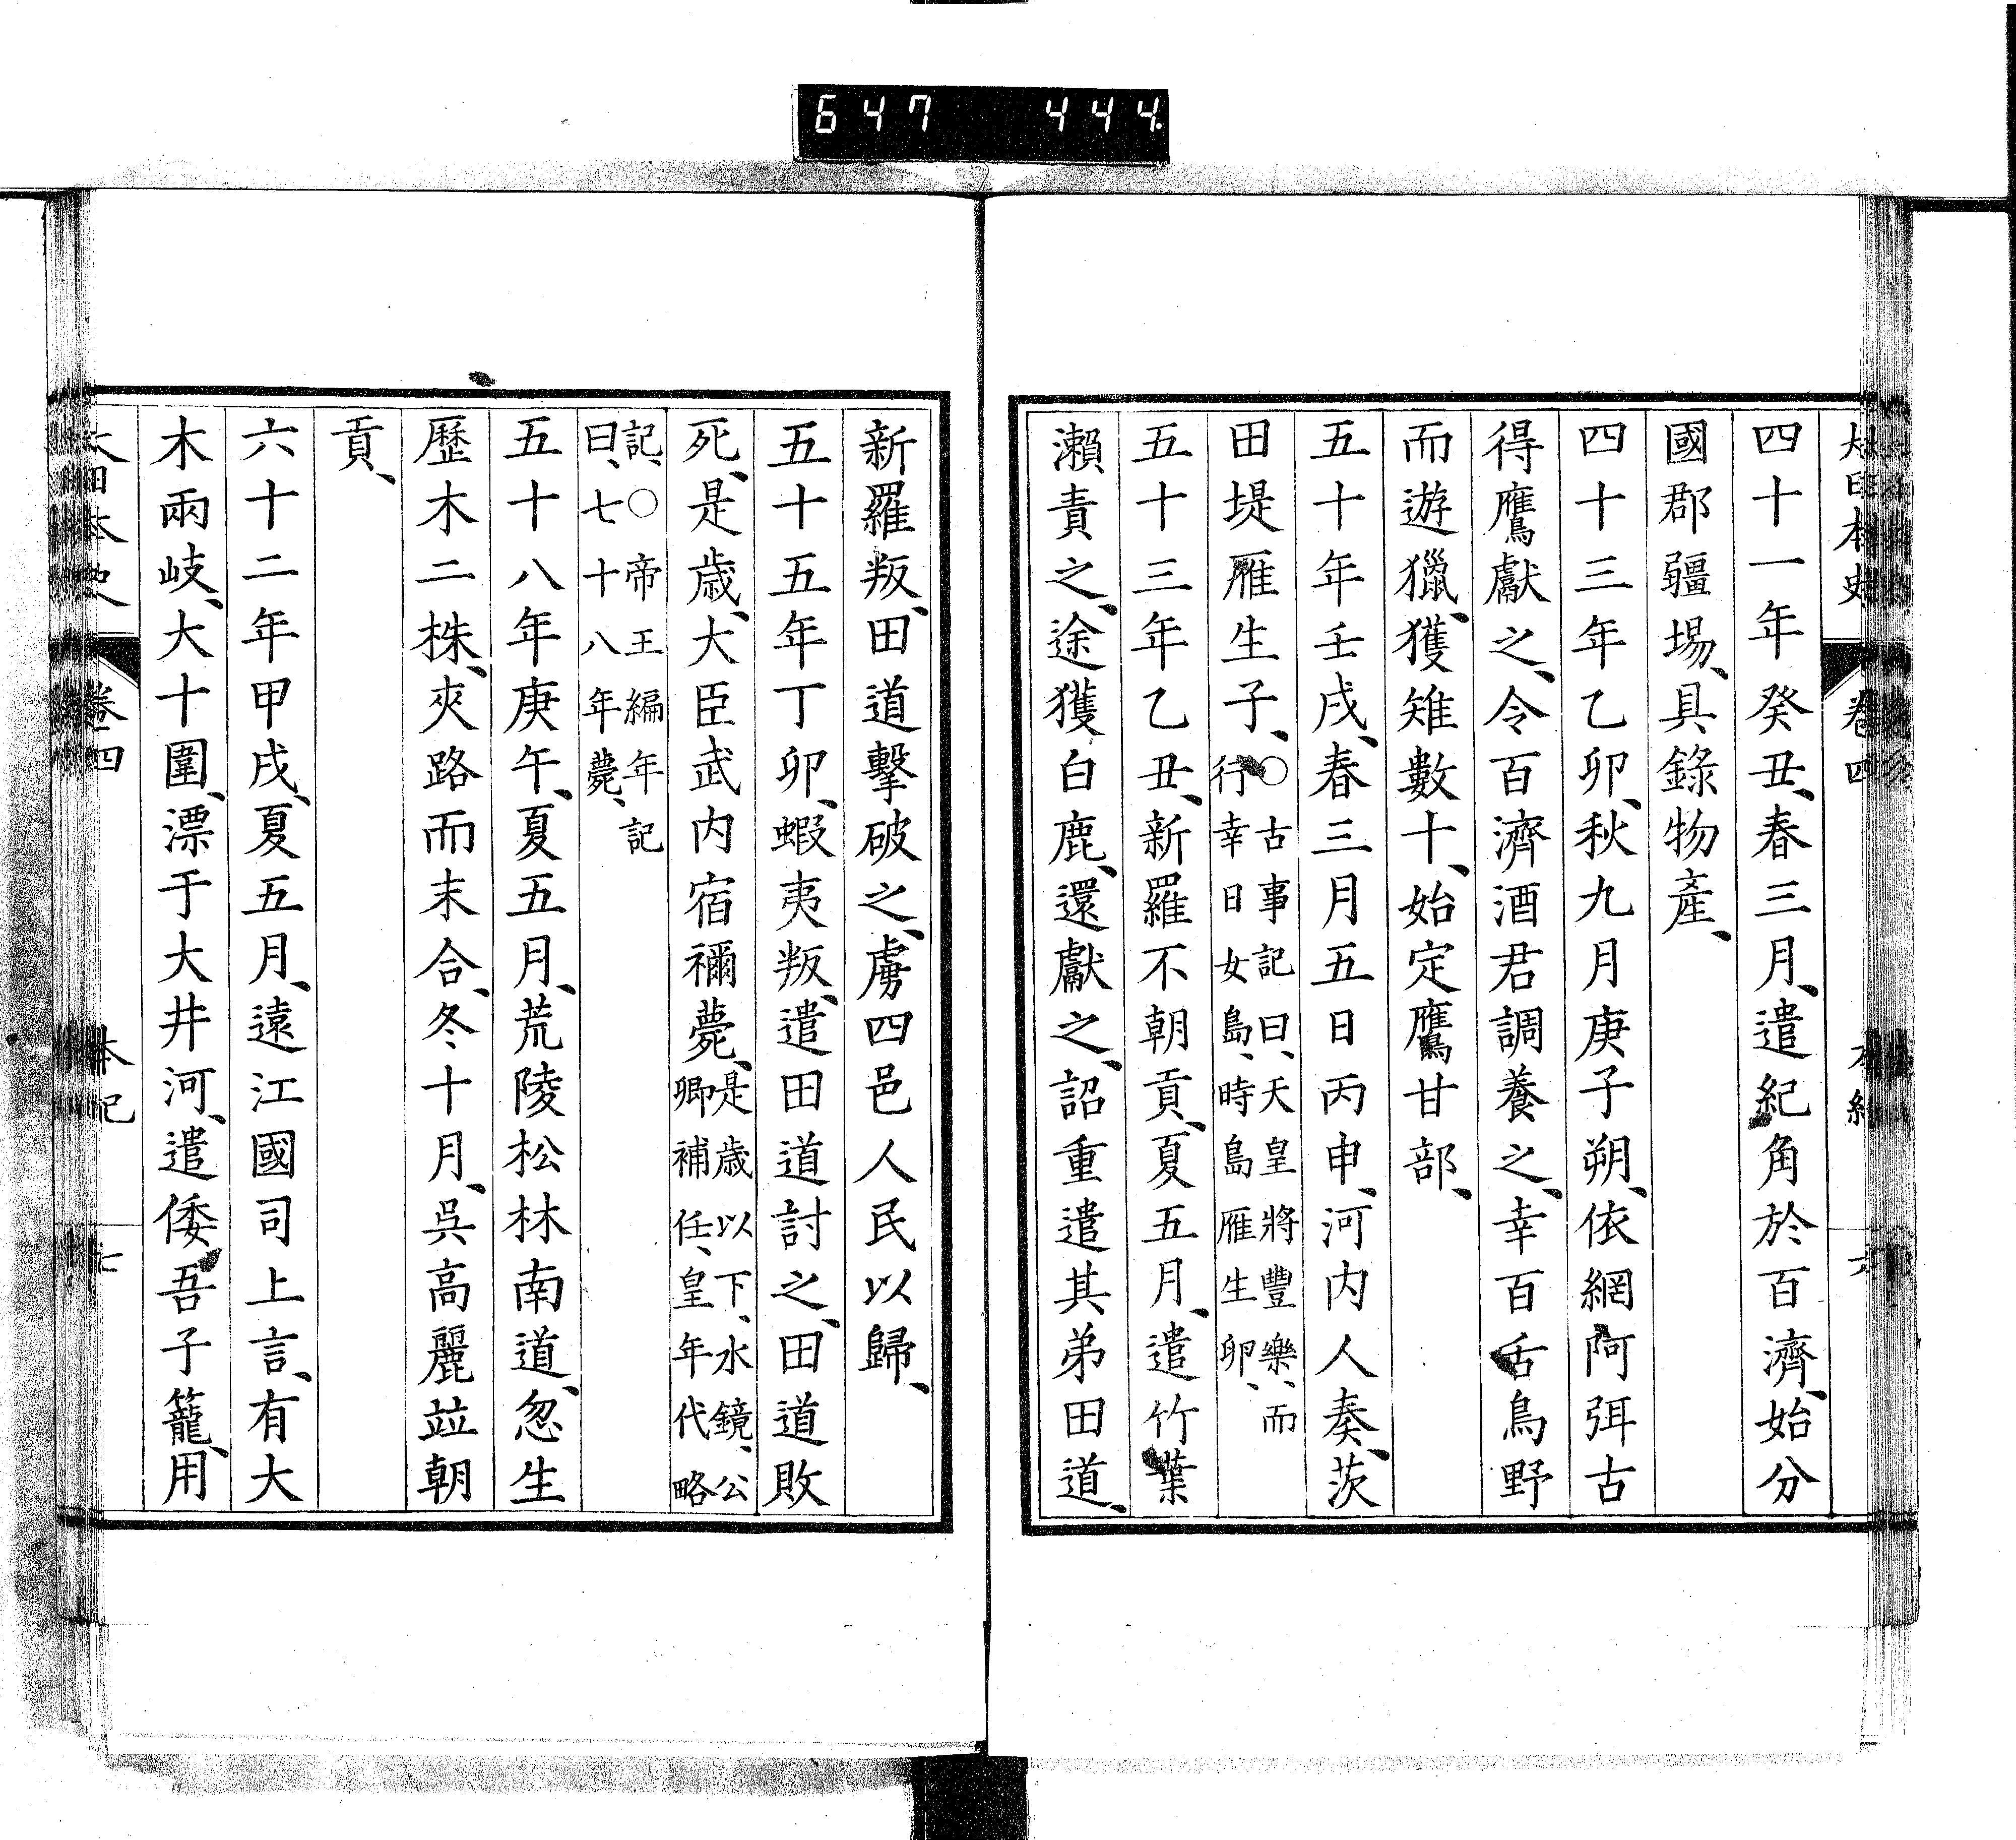 647 444
大日本史 卷四 本紀 六
四十一年癸丑、春三月、遣紀角於百濟、始分
國郡疆場、具錄物產、
四十三年乙卯、秋九月庚子朔、依網阿弭古
得鷹獻之、令百濟酒君調養之、幸百舌鳥野
而遊獵、獲雉數十、始定鷹甘部、
五十年壬戌、春三月五日丙申、河内人奏、茨
田堤雁生子、○古事記曰、天皇將豐樂、而
行幸日女島、時島雁生卵、
五十三年乙丑、新羅不朝貢、夏五月、遣竹葉
瀨責之、途獲白鹿、還獻之、詔重遣其弟田道、
新羅叛、田道擊破之、虜四邑人民以歸、
五十五年丁卯、蝦夷叛、遣田道討之、田道敗
死、是歲、大臣武内宿禰薨、是歲以下、水鏡、公
卿補任、皇年代略
記、○帝王編年記
曰、七十八年薨、
五十八年庚午、夏五月、荒陵松林南道、忽生
歷木二株、夾路而末合、冬十月、吳高麗竝朝
貢、
六十二年甲戌、夏五月、遠江國司上言、有大
木兩岐、大十圍、漂于大井河、遣倭吾子籠、用
大日本史 卷四 本紀 七